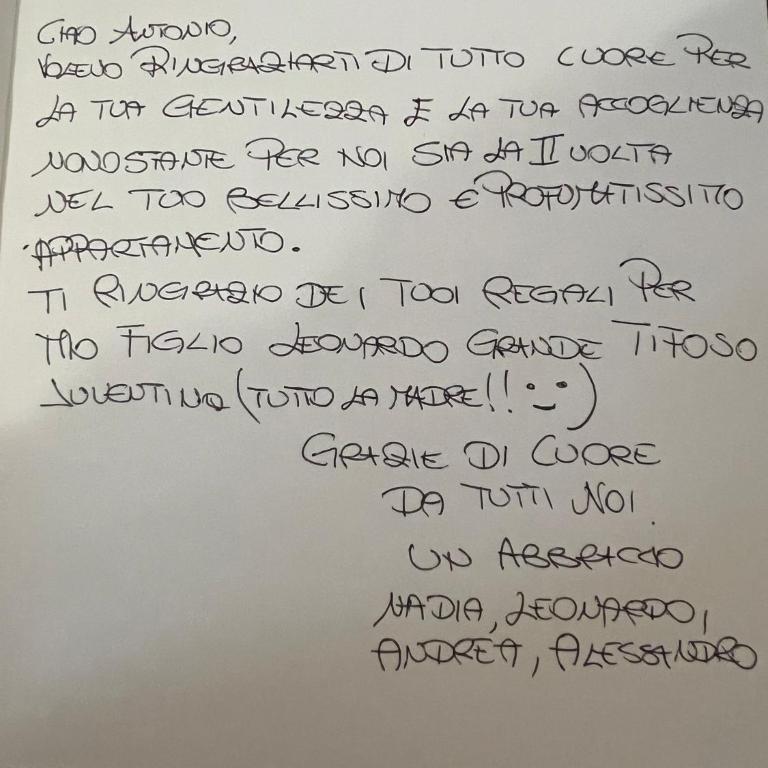 CIAO ANTONIO,
VOLEVO RINGRAZIARTI DI TUTTO CUORE PER
LA TUA GENTILEZZA E LA TUA ACCOGLIENZA
NONOSTANTE PER NOI SIA LA II VOLTA
NEL TUO BELLISSIMO E PROFUMATISSIMO
APPARTAMENTO.
TI RINGRAZIO DEI TUOI REGALI PER
MIO FIGLIO LEONARDO GRANDE TIFOSO
JUVENTINO (TUTTO LA MADRE!! :-))
GRAZIE DI CUORE
DA TUTTI NOI.
UN ABBRACCIO
NADIA, LEONARDO,
ANDREA, ALESSANDRO